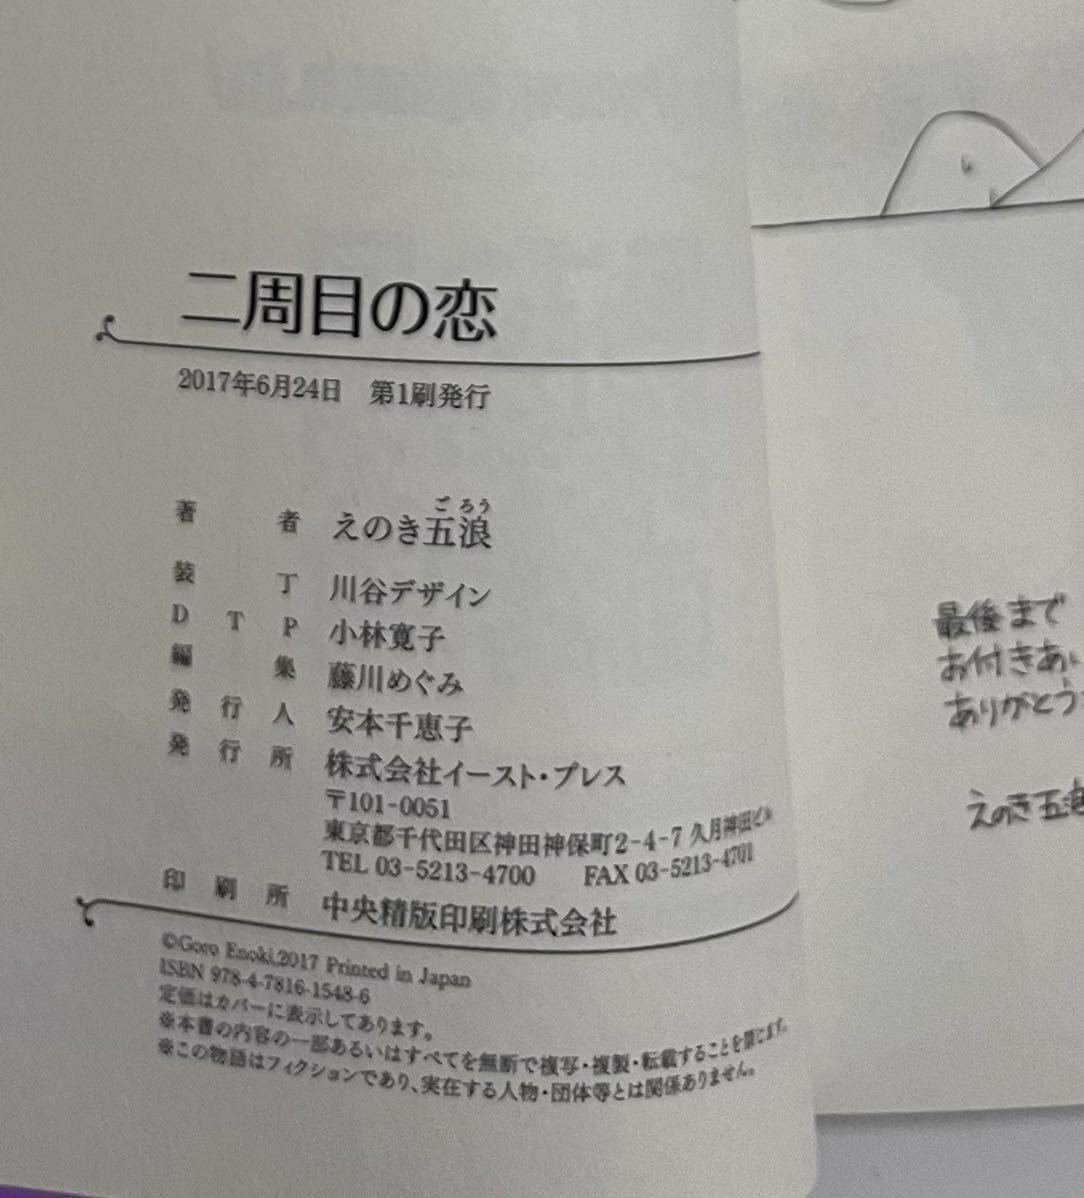 二周目の恋
2017年6月24日　第1刷発行
著者　えのき五浪
ごろう
装丁　川谷デザイン
DTP　小林寛子
編集　藤川めぐみ
発行人　安本千恵子
発行所　株式会社イースト・プレス
〒101-0051
東京都千代田区神田神保町2-4-7 久月神田ビル
TEL 03-5213-4700　FAX 03-5213-4701
印刷所　中央精版印刷株式会社
©Goro Enoki.2017 Printed in Japan
ISBN 978-4-7816-1548-6
定価はカバーに表示してあります。
※本書の内容の一部あるいはすべてを無断で複写・複製・転載することを禁じます。
※この物語はフィクションであり、実在する人物・団体等とは関係ありません。
最後まで
お付きあい
ありがとう
えのき五浪